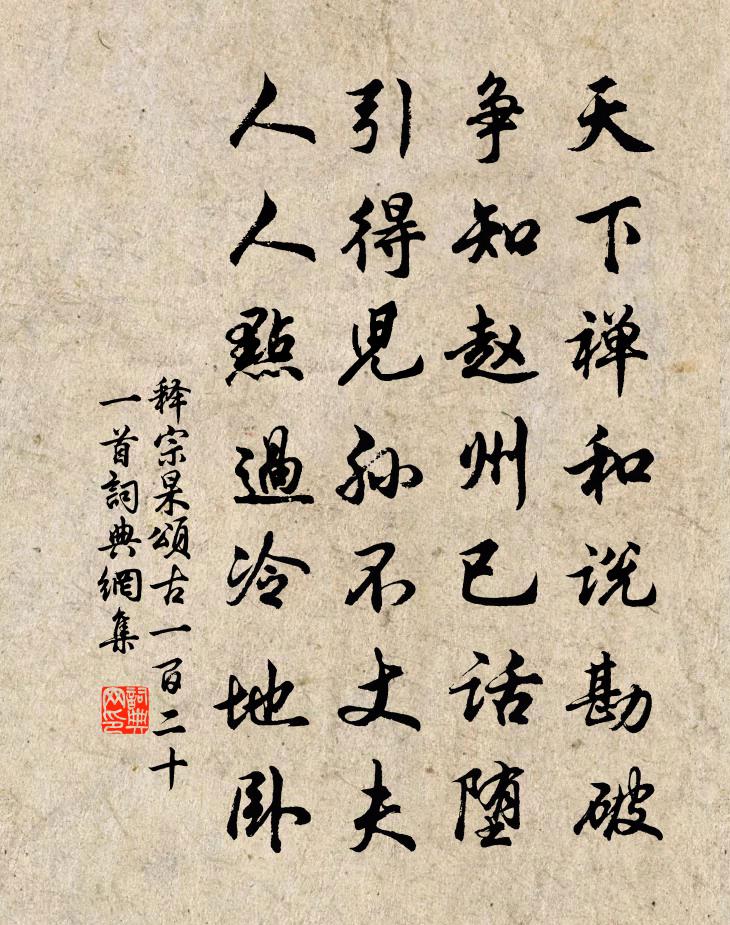 天下禅和说勘破
争知赵州已话堕
引得児孙不丈夫
人人點過冷地卧
释宗杲頌古一百二十
一首詞典網集
詞典网印